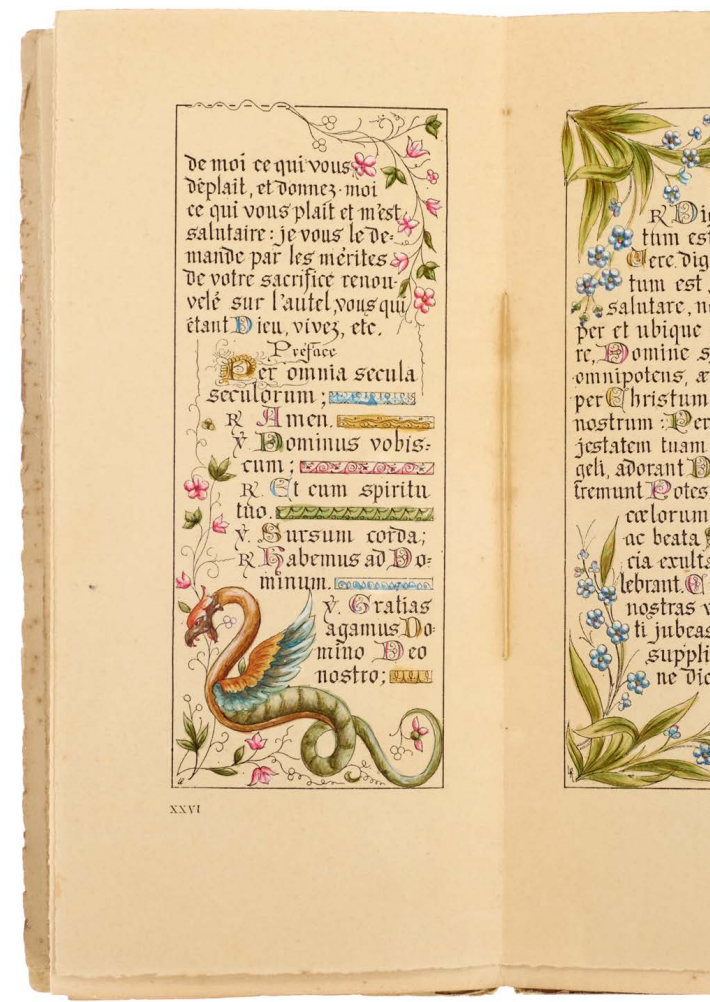 de moi ce qui vous
déplait, et donnez-moi
ce qui vous plait et m'est
salutaire: je vous le de-
mande par les mérites
de votre sacrifice renou-
velé sur l'autel, vous qui
étant Dieu, vivez, etc.
Préface
Per omnia secula
seculorum;
℟ Amen.
℣ Dominus vobis-
cum;
℟. Et cum spiritu
tuo.
℣. Sursum corda;
℟ Habemus ad Do-
minum.
℣. Gratias
agamus Do-
mino Deo
nostro;
XXVI
℟ Di
tum est
Vere dig
tum est
salutare, n
per et ubique
re, Domine s
omnipotens, æ
per Christum
nostrum: Per
jestatem tuam
geli, adorant D
tremunt Potes
cœlorum
ac beata
cia exulta
lebrant. C
nostras v
ti jubeas
suppli
ne dic